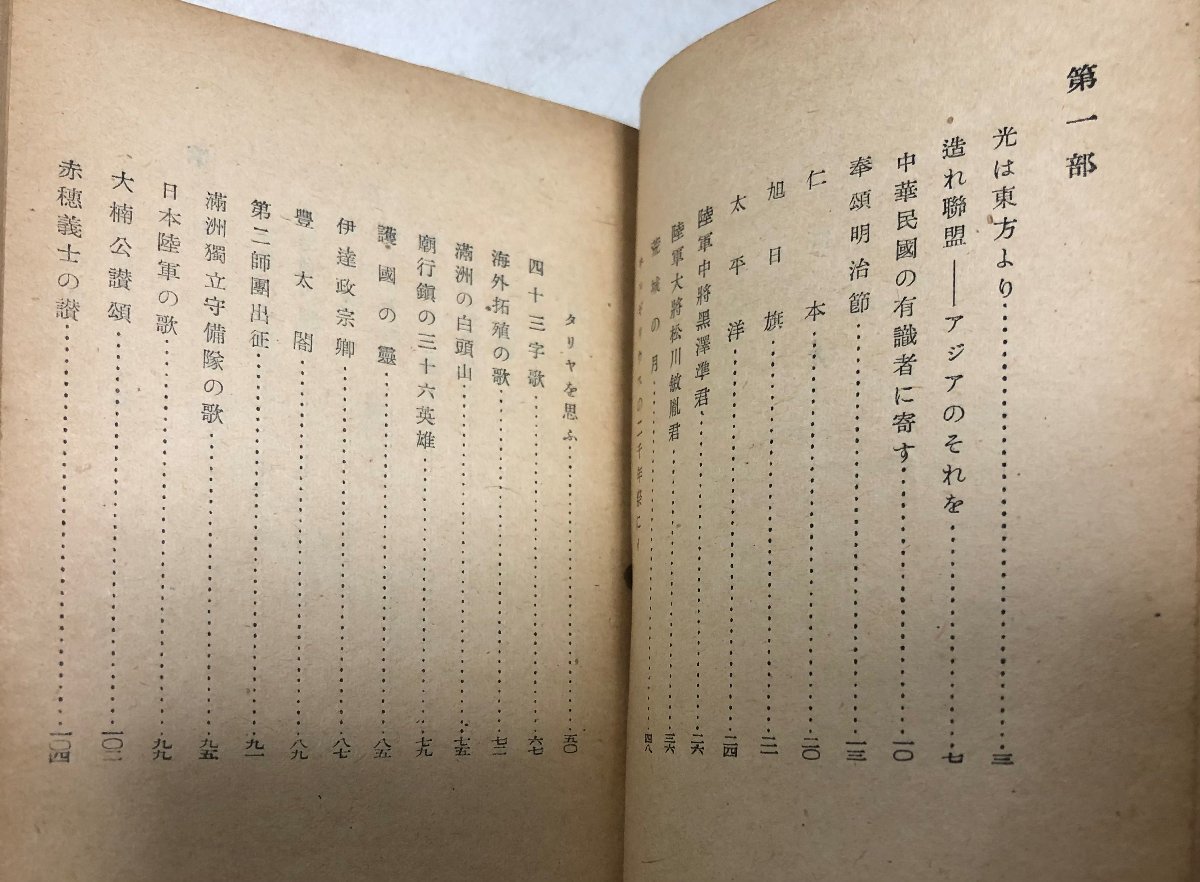 第一部
光は東方より……………………三
造れ聯盟――アジアのそれを……………七
中華民國の有識者に寄す……………一〇
奉頌明治節……………………一三
仁本……………………二〇
旭日旗……………………二二
太平洋……………………二四
陸軍中將黑澤準君……………………二六
陸軍大將松川敏胤君……………………三六
荒城の月……………………四八
の二千年祭に
タリヤを思ふ……………………五〇
四十三字歌……………………六七
海外拓殖の歌……………………七二
滿洲の白頭山……………………七五
廟行鎭の三十六英雄……………………七九
護國の靈……………………八五
伊達政宗卿……………………八七
豐太閤……………………八九
第二師團出征……………………九一
滿洲獨立守備隊の歌……………………九五
日本陸軍の歌……………………九九
大楠公讃頌……………………一〇二
赤穗義士の讃……………………一〇四